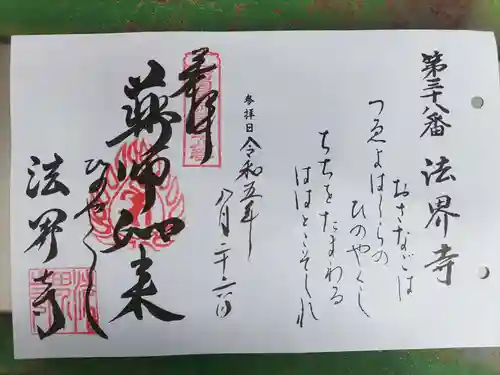 第三十八番 法界寺
おさなごは
つゑよはしらの
ひのやくし
ちちをたまわる
ははとこそしれ
参拝日 令和五年
八月二十二日
奉拝
藥師如来
ひのやくし
法界寺